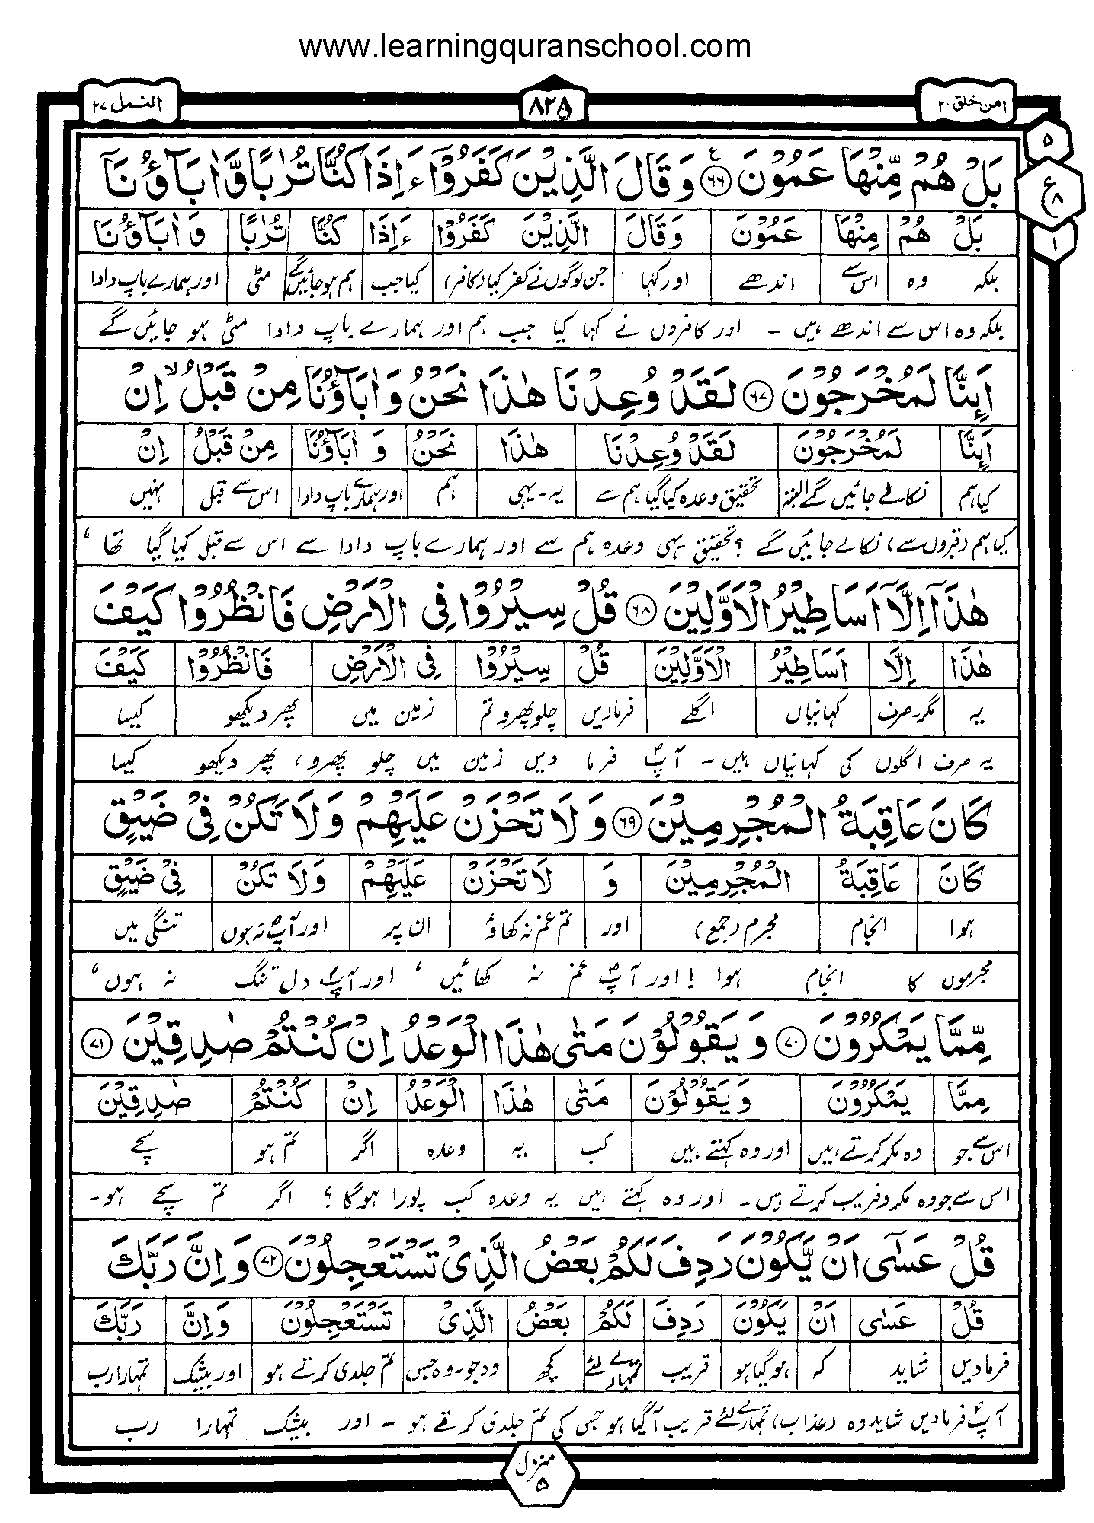 www.learningquranschool.com
امن خلق ۲۰
۸۲۵
النمل ۲۷
۵
ع
۸
۱
بَلْ هُمْ مِّنْهَا عَمُوْنَ ﴿۶۶﴾ وَقَالَ الَّذِيْنَ كَفَرُوْٓا ءَاِذَا كُنَّا تُرٰبًا وَّاٰبَآؤُنَآ
بَلْ هُمْ مِنْهَا عَمُوْنَ وَقَالَ الَّذِيْنَ كَفَرُوْٓا ءَاِذَا كُنَّا تُرٰبًا وَاٰبَآؤُنَآ
بلکہ وہ اس سے اندھے اور کہا جن لوگوں نے کفر کیا (کافر) کیا جب ہم ہو جائیں گے مٹی اور ہمارے باپ دادا
بلکہ وہ اس سے اندھے ہیں ۔ اور کافروں نے کہا کیا جب ہم اور ہمارے باپ دادا مٹی ہو جائیں گے
اَئِنَّا لَمُخْرَجُوْنَ ﴿۶۷﴾ لَقَدْ وُعِدْنَا هٰذَا نَحْنُ وَاٰبَآؤُنَا مِنْ قَبْلُ ۙ اِنْ
اَئِنَّا لَمُخْرَجُوْنَ لَقَدْ وُعِدْنَا هٰذَا نَحْنُ وَ اٰبَآؤُنَا مِنْ قَبْلُ اِنْ
کیا ہم نکالے جائیں گے البتہ تحقیق وعدہ کیا گیا ہم سے یہ ۔ یہی ہم اور ہمارے باپ دادا اس سے قبل نہیں
کیا ہم (قبروں سے) نکالے جائیں گے ؟ تحقیق یہی وعدہ ہم سے اور ہمارے باپ دادا سے اس سے قبل کیا گیا تھا ،
هٰذَآ اِلَّآ اَسَاطِيْرُ الْاَوَّلِيْنَ ﴿۶۸﴾ قُلْ سِيْرُوْا فِى الْاَرْضِ فَانْظُرُوْا كَيْفَ
هٰذَا اِلَّا اَسَاطِيْرُ الْاَوَّلِيْنَ قُلْ سِيْرُوْا فِى الْاَرْضِ فَانْظُرُوْا كَيْفَ
یہ مگر صرف کہانیاں اگلے فرمادیں چلو پھرو تم زمین میں پھر دیکھو کیسا
یہ صرف اگلوں کی کہانیاں ہیں ۔ آپؐ فرما دیں زمین میں چلو پھرو، پھر دیکھو کیسا
كَانَ عَاقِبَةُ الْمُجْرِمِيْنَ ﴿۶۹﴾ وَلَا تَحْزَنْ عَلَيْهِمْ وَلَا تَكُنْ فِىْ ضَيْقٍ
كَانَ عَاقِبَةُ الْمُجْرِمِيْنَ وَ لَا تَحْزَنْ عَلَيْهِمْ وَلَا تَكُنْ فِىْ ضَيْقٍ
ہوا انجام مجرم (جمع) اور تم غم نہ کھاؤ ان پر اور آپؐ نہ ہوں تنگی میں
مجرموں کا انجام ہوا ! اور آپؐ غم نہ کھائیں ، اور آپؐ دل تنگ نہ ہوں ،
مِّمَّا يَمْكُرُوْنَ ﴿۷۰﴾ وَيَقُوْلُوْنَ مَتٰى هٰذَا الْوَعْدُ اِنْ كُنْتُمْ صٰدِقِيْنَ ﴿۷۱﴾
مِمَّا يَمْكُرُوْنَ وَيَقُوْلُوْنَ مَتٰى هٰذَا الْوَعْدُ اِنْ كُنْتُمْ صٰدِقِيْنَ
اس سے جو وہ مکر کرتے ہیں اور وہ کہتے ہیں کب یہ وعدہ اگر تم ہو سچے
اس سے جو وہ مکر و فریب کرتے ہیں ۔ اور وہ کہتے ہیں یہ وعدہ کب پورا ہوگا ؟ اگر تم سچے ہو ۔
قُلْ عَسٰٓى اَنْ يَّكُوْنَ رَدِفَ لَكُمْ بَعْضُ الَّذِىْ تَسْتَعْجِلُوْنَ ﴿۷۲﴾ وَاِنَّ رَبَّكَ
قُلْ عَسٰى اَنْ يَكُوْنَ رَدِفَ لَكُمْ بَعْضُ الَّذِىْ تَسْتَعْجِلُوْنَ وَاِنَّ رَبَّكَ
فرمادیں شاید کہ ہو گیا ہو قریب تمہارے لئے کچھ وہ جو ۔ وہ جس تم جلدی کرتے ہو اور بیشک تمہارا رب
آپؐ فرمادیں شاید وہ (عذاب) تمہارے لئے قریب آگیا ہو جس کی تم جلدی کرتے ہو ۔ اور بیشک تمہارا رب
منزل ۵